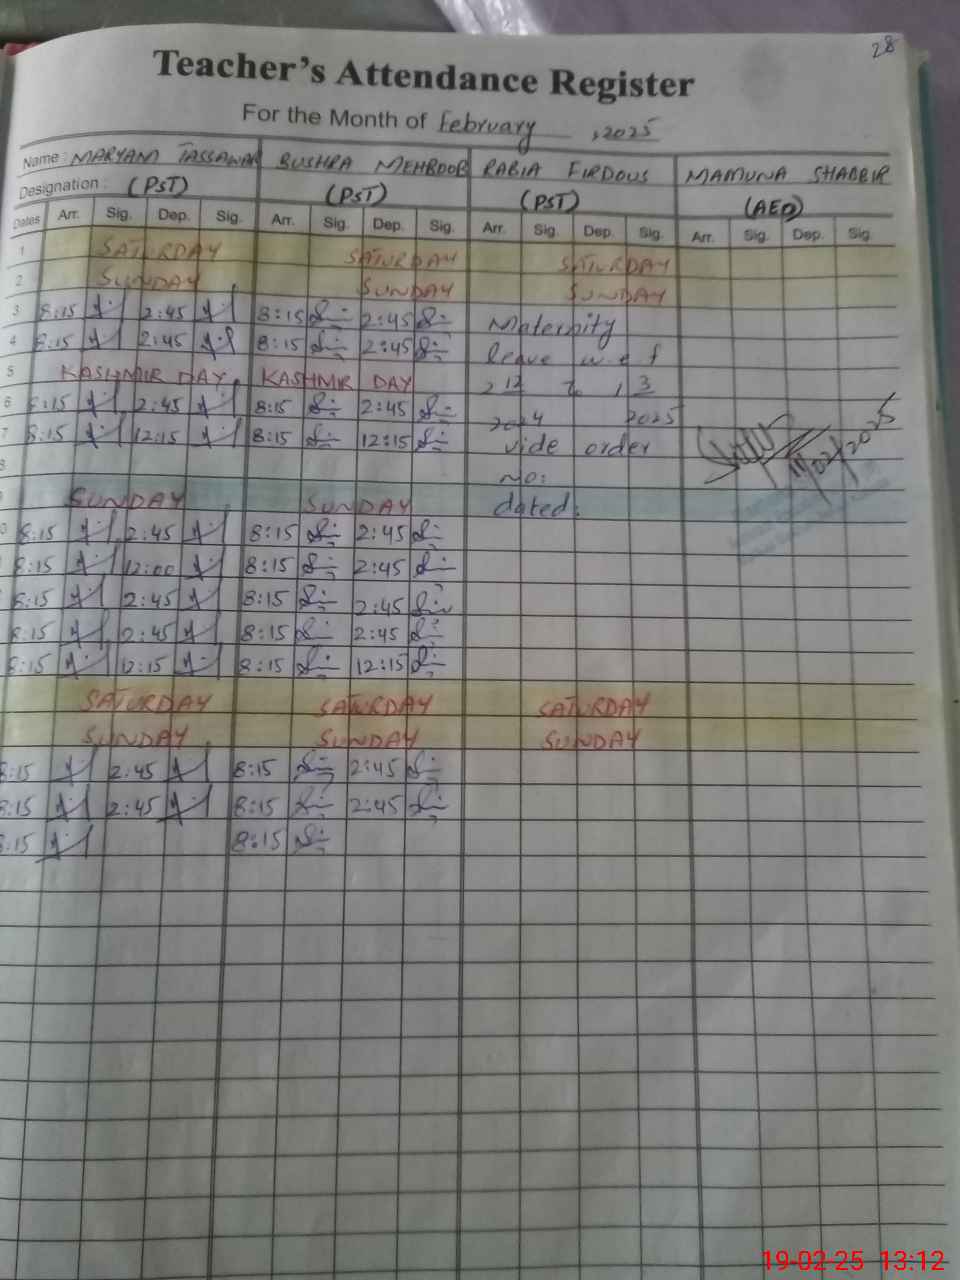 28
Teacher's Attendance Register
For the Month of February, 2025
Name: MARYAM TASSAWAR BUSHRA MEHBOOB RABIA FIRDOUS MAMUNA SHABBIR
Designation: (PST) (PST) (PST) (AEO)
Dates Arr. Sig. Dep. Sig. Arr. Sig. Dep. Sig. Arr. Sig. Dep. Sig. Arr. Sig. Dep. Sig.
1 SATURDAY SATURDAY SATURDAY
2 SUNDAY SUNDAY SUNDAY
3 8:15 2:45 8:15 2:45 Maternity
4 8:15 2:45 8:15 2:45 leave w.e.f
5 KASHMIR DAY KASHMIR DAY 12 3
6 8:15 2:45 8:15 2:45 2024 2025
7 8:15 12:15 8:15 12:15 vide order
8 no:
9 SUNDAY SUNDAY dated:
0 8:15 2:45 8:15 2:45
8:15 12:00 8:15 2:45
8:15 2:45 8:15 2:45
8:15 2:45 8:15 2:45
8:15 12:15 8:15 12:15
SATURDAY SATURDAY SATURDAY
SUNDAY SUNDAY SUNDAY
8:15 2:45 8:15 2:45
8:15 2:45 8:15 2:45
8:15 8:15
19-02-25 13:12